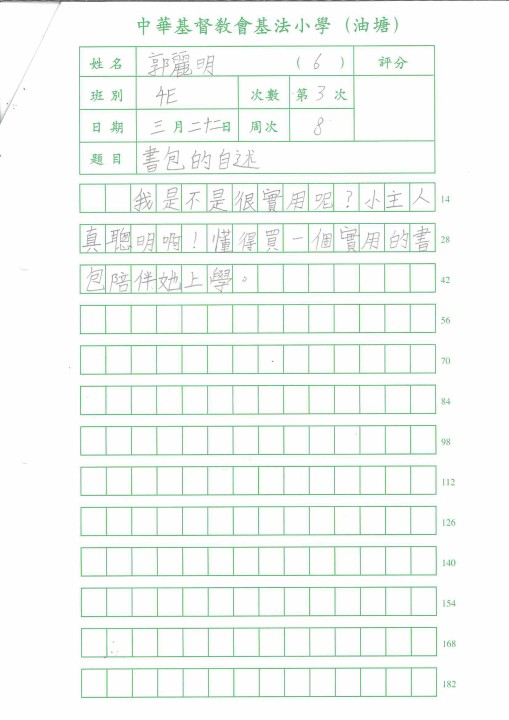 中華基督教會基法小學（油塘）
姓名 郭麗明 （6） 評分
班別 4E 次數 第3次
日期 三月二十二日 周次 8
題目 書包的自述
我是不是很實用呢？小主人 14
真聰明啊！懂得買一個實用的書 28
包陪伴她上學。 42
56
70
84
98
112
126
140
154
168
182